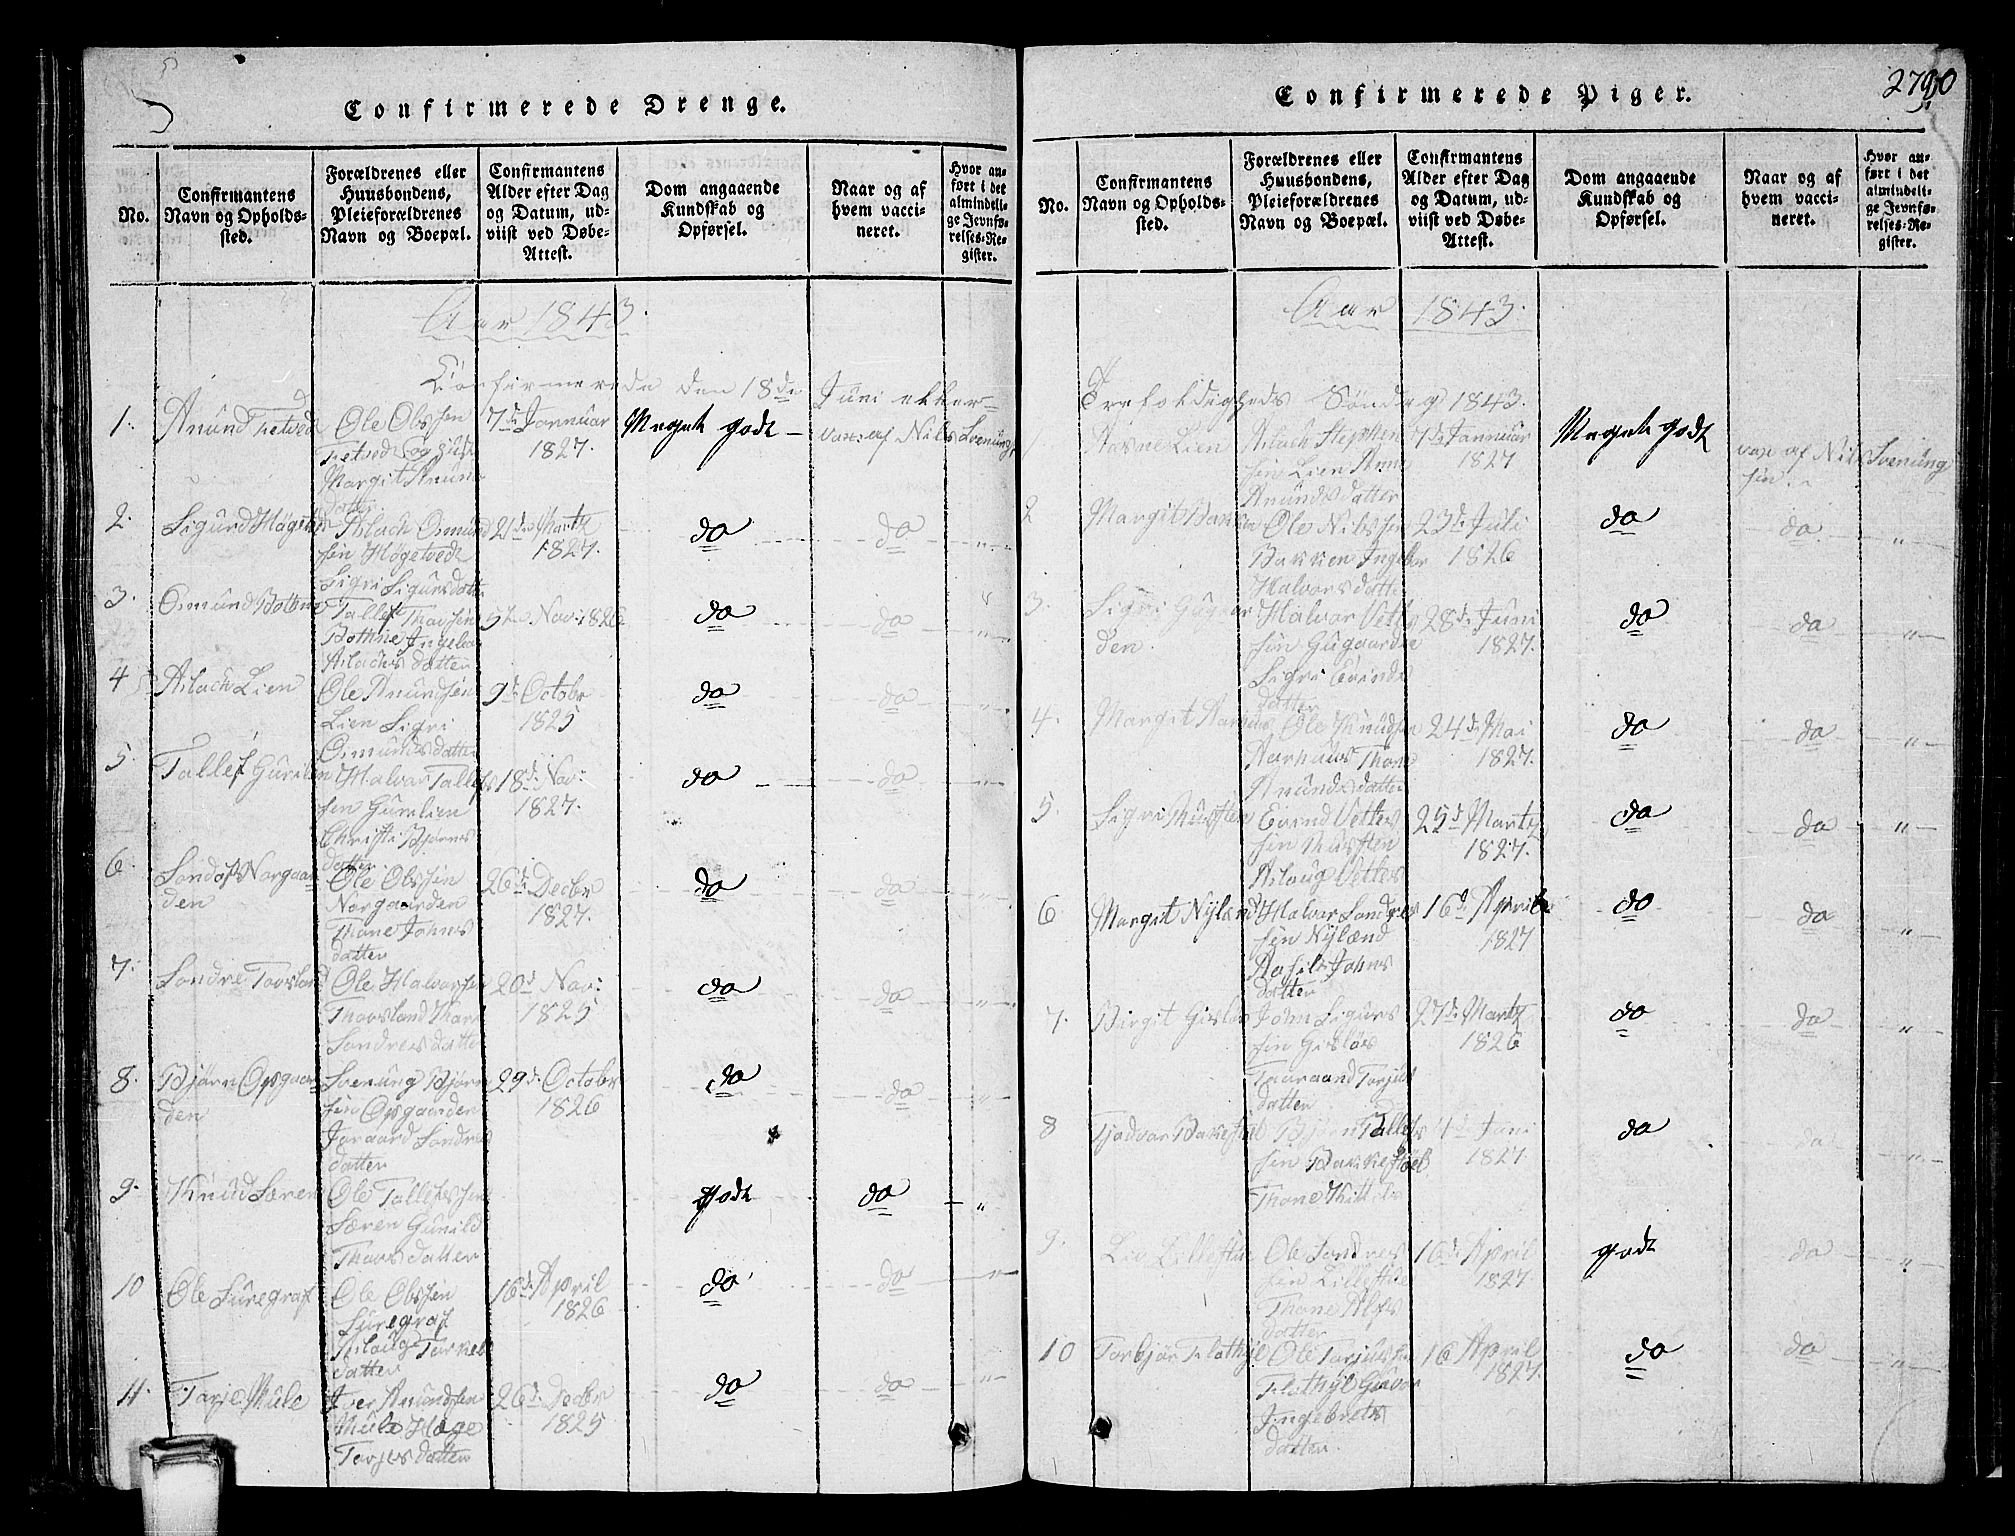 Confirmerede Drenge.
No.
Confirmantens
Navn og Opholds-
sted.
Forældrenes eller
Huusbondens,
Pleieforældrenes
Navn og Boepæl.
Confirmantens
Alder efter Dag
og Datum, ud-
viist ved Døbe-
Attest.
Dom angaaende
Kundskab og
Opførsel.
Naar og af
hvem vacci-
neret.
Hvor an-
ført i det
almindeli-
ge Jevnfø-
relses-Re-
gister.
Aar 1843.
Confirmerede den 18de Juni
1. Anund Tvetved
Ole Olssen
Margit Anunds
datter
7de Januar
1827.
Meget godt
vax. af Nils Svenungs
2. Sigurd Høgetved
Aslach Osmund
sen Høgetvedt
Sigri Sigursdatter
21de Martz
1827.
do
do
3. Osmund Bothne
Tallef Thorsen
Bothne Ingebor
Aslachs datter
5te Nov: 1826
do
do
4 Aslach Lien
Ole Anundsen
Lien Sigri
Osmundsdatter
9de Octobr
1825
do
do
5. Tallef Gurilien
Halvor Tallefs
sen Gurilien
Christi Bjørns
datter
18de Nov:
1827.
do
do
6. Sondof Norgaar
den
Ole Olssen
Norgaarden
Thone Johns
datter
26de Decbr
1827.
do
do
7. Sondre Tovsland
Ole Halvorsen
Thovsland Mari
Sondresdatter
20de Nov:
1825
do
do
8. Bjørn Opgaar
den
Svenung Bjørn
sen Opgaarden
Joraand Sondres
datter
29de October
1826
do
do
9. Knud Søren
Ole Tallefssen
Søren Gunild
Thovs datter
godt
do
10 Ole Suregraf
Ole Olssen
Suregraf
Aslaug Tarkels
datter
16de April
1826
do
do
11. Torje Mule
Iver Anundsen
Mule Hæge
Torjes datter
26de Decbr
1825
do
do
Confirmerede Piger.
2790
No.
Confirmantens
Navn og Opholds-
sted.
Forældrenes eller
Huusbondens,
Pleieforældrenes
Navn og Boepæl.
Confirmantens
Alder efter Dag
og Datum, ud-
viist ved Døbe-
Attest.
Dom angaaende
Kundskab og
Opførsel.
Naar og af
hvem vacci-
neret.
Hvor an-
ført i det
almindeli-
ge Jevnfø-
relses-Re-
gister.
Aar 1843.
Trefoldigheds Søndag 1843.
1 Aasne Lien
Aslach Stephen
sen Lien Anne
Anundsdatter
7de Januar
1827
Meget godt
vax af Nils Svenung
sen.
2 Margit Bakken
Ole Nilssen
Bakken Ingebor
Halvorsdatter
23de Juli
1826
do
do
3. Sigri Gugaar
den.
Halvor Vetle
sen Gugaarden
Sigri Evinds
datter
28de Juni
1827.
do
do
4. Margit Aarhuus
Ole Knudsen
Aarhuus Thone
Anundsdatter
24de Mai
1827.
do
do
5. Sigri
Evind Vetles
Aslaug Vetles
25de Martz
1827.
do
do
6 Margit Nylænd
Halvor Sondres
sen Nylænd
Aasild Johns
datter
16de April
1827
do
do
7. Birgit Gisløs
John Sigurs
sen Gisløs
Taaraand Torjus
datter
27de Martz
1826
do
do
8 Tjodvor Bakkestøel
Bjørn Tallefs
sen Bakkestøel
Thone Kittels
4de Juni
1827.
do
do
9. Liv Lillestue
Ole Sondres
sen Lillestue
Thone Alfs
datter
16de April
1827.
godt
do
10 Torbjør Flathyl
Ole Torjussen
Flathyl Gunvor
Ingebrets
datter
16 April
1827.
do
do